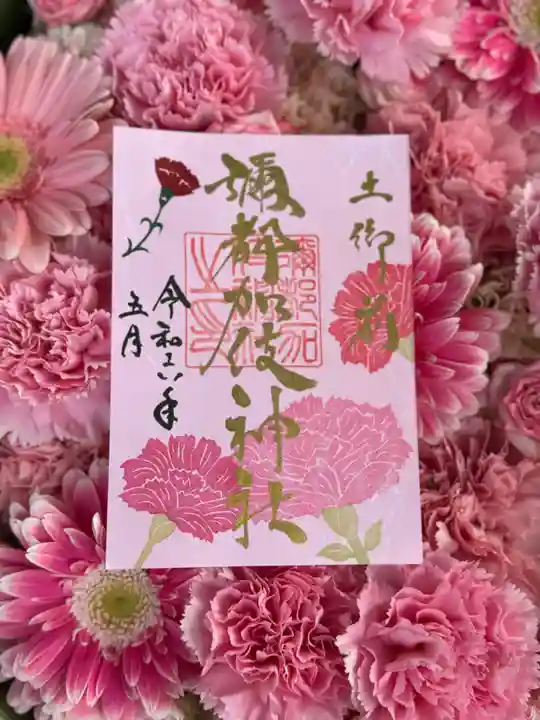 土御前
彌都加伎神社
令和六年
五月